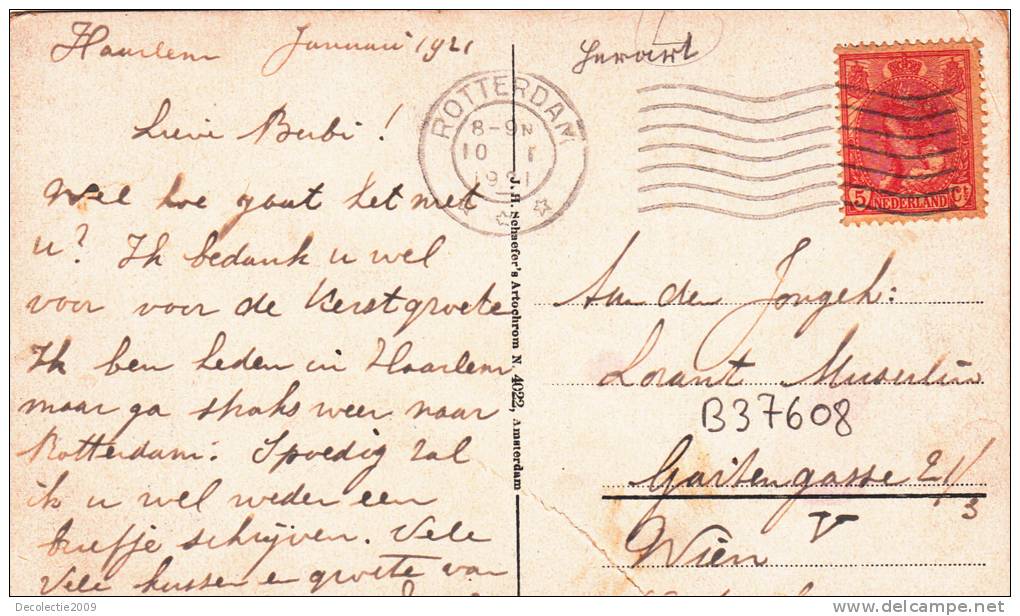 Haarlem Januari 1921
Lieve Berbi!
Wel hoe gaat het met
u? Ik bedank u wel
voor voor de Kerstgroete
Ik ben heden in Haarlem
maar ga straks weer naar
Rotterdam. Spoedig zal
ik u wel weder een
briefje schrijven. Vele
Vele kussen en groete van
J. H. Schaefer's Artochrom N. 4022, Amsterdam
ROTTERDAM
8-9N
10 I
1921
5 Ct
NEDERLAND
Aan den Jongeh:
Lorant
B37608
Gartengasse 21/
3
Wien V
Decolectie2009
delcampe.net